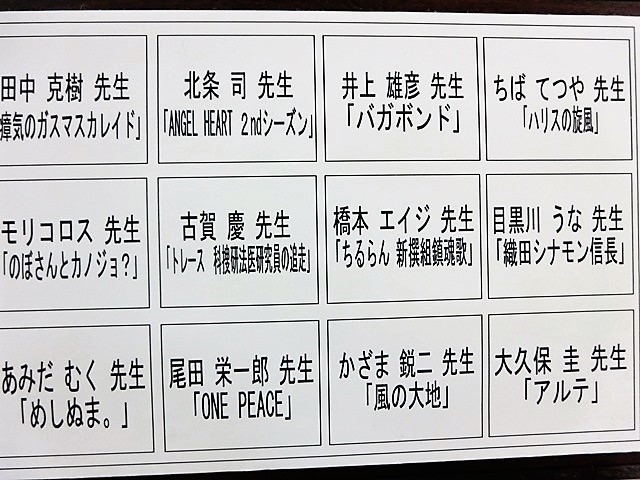 田中 克樹 先生
瘴気のガスマスカレイド」
北条 司 先生
「ANGEL HEART 2ndシーズン」
井上 雄彦 先生
「バガボンド」
ちば てつや 先生
「ハリスの旋風」
モリコロス 先生
「のぼさんとカノジョ？」
古賀 慶 先生
「トレース 科捜研法医研究員の追走」
橋本 エイジ 先生
「ちるらん 新撰組鎮魂歌」
目黒川 うな 先生
「織田シナモン信長」
あみだ むく 先生
「めしぬま。」
尾田 栄一郎 先生
「ONE PEACE」
かざま 鋭二 先生
「風の大地」
大久保 圭 先生
「アルテ」